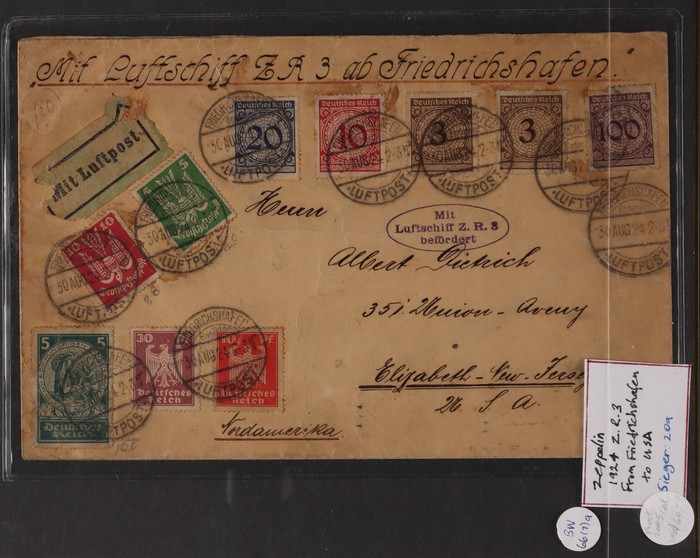 "Mit Luftschiff Z.R 3 ab Friedrichshafen."
Mit Luftpost.
Deutsches Reich
20
Deutsches Reich
10
Deutsches Reich
3
Deutsches Reich
3
Deutsches Reich
100
FRIEDRICHSHAFEN
30 AUG 24 2-3 N
LUFTPOST
5
Deutsches Reich
10
Deutsches Reich
Herrn
Mit
Luftschiff Z. R. 3
befördert
Albert Dietrich
351 Union-Aveny
Elizabeth-New-Jersey
U. S. A.
Nordamerika
5
Deutsches
Reich
30
Deutsches
Reich
10 PF
Deutsches
Reich
Zeppelin
1924 Z.R-3
From Friedrichshafen
to USA
Sieger: 20a
SW
66(7)a